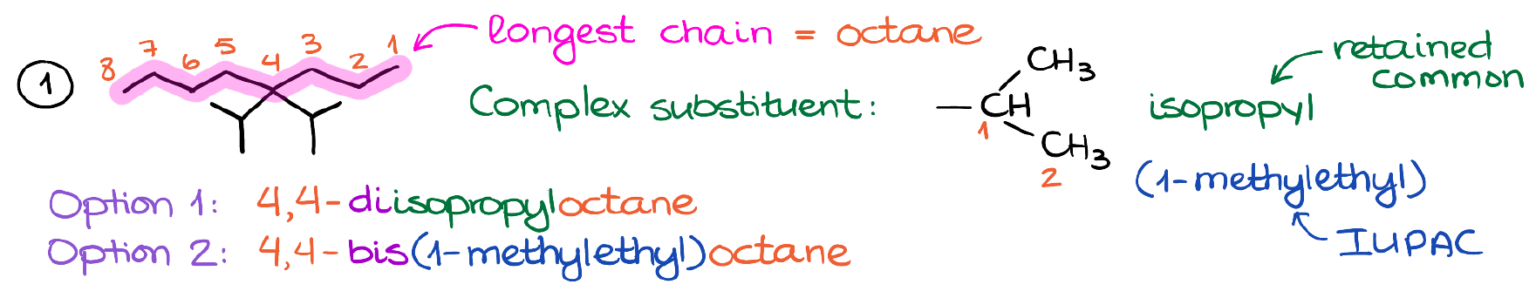 1
8 7 6 5 4 3 2 1
longest chain = octane
Complex substituent:
CH3
—CH
1
CH3
2
isopropyl
retained
common
(1-methylethyl)
IUPAC
Option 1: 4,4-diisopropyloctane
Option 2: 4,4-bis(1-methylethyl)octane